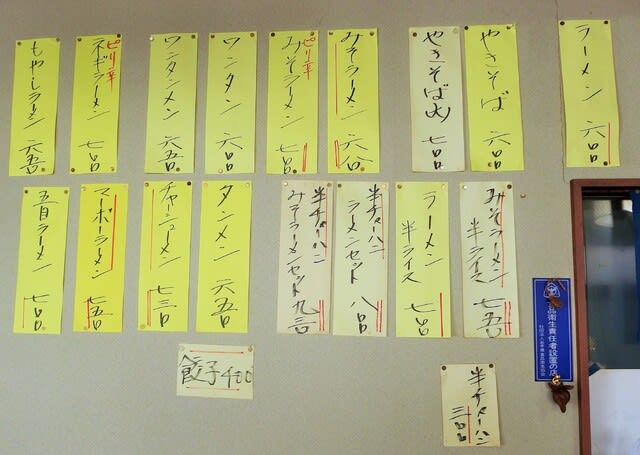 ラーメン 六〇〇
やきそば 六〇〇
やきそば(大) 七〇〇
みそラーメン 六五〇
ピリ辛
みそラーメン 七〇〇
ワンタン 六〇〇
ワンタンメン 六五〇
ピリ辛
ネギラーメン 七〇〇
もやしラーメン 六五〇
みそラーメン
半ライス 七五〇
ラーメン
半ライス 七〇〇
半チャーハン
ラーメンセット 八〇〇
半チャーハン
みそラーメンセット 九三〇
タンメン 六五〇
チャーシューメン 七三〇
マーボーラーメン 七五〇
五目ラーメン 七〇〇
餃子 400
半チャーハン
三〇〇
食品衛生責任者設置の店